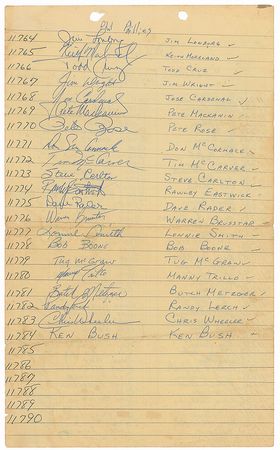 Phillies
11764 Jim Lonborg Jim Lonborg ✓
11765 Keith Moreland ✓
11766 Todd Cruz Todd Cruz ✓
11767 Jim Wright Jim Wright ✓
11768 Jose Cardenal Jose Cardenal ✓
11769 Pete Mackanin Pete Mackanin ✓
11770 Pete Rose Pete Rose ✓
11771 Don McCormack Don McCormack ✓
11772 Tim McCarver Tim McCarver ✓
11773 Steve Carlton Steve Carlton ✓
11774 Rawley Eastwick ✓
11775 Dave Rader Dave Rader ✓
11776 Warren Brusstar Warren Brusstar ✓
11777 Lonnie Smith Lonnie Smith ✓
11778 Bob Boone Bob Boone ✓
11779 Tug McGraw Tug McGraw ✓
11780 Manny Trillo Manny Trillo ✓
11781 Butch Metzger Butch Metzger ✓
11782 Randy Lerch Randy Lerch ✓
11783 Chris Wheeler Chris Wheeler ✓
11784 Ken Bush Ken Bush ✓
11785
11786
11787
11788
11789
11790